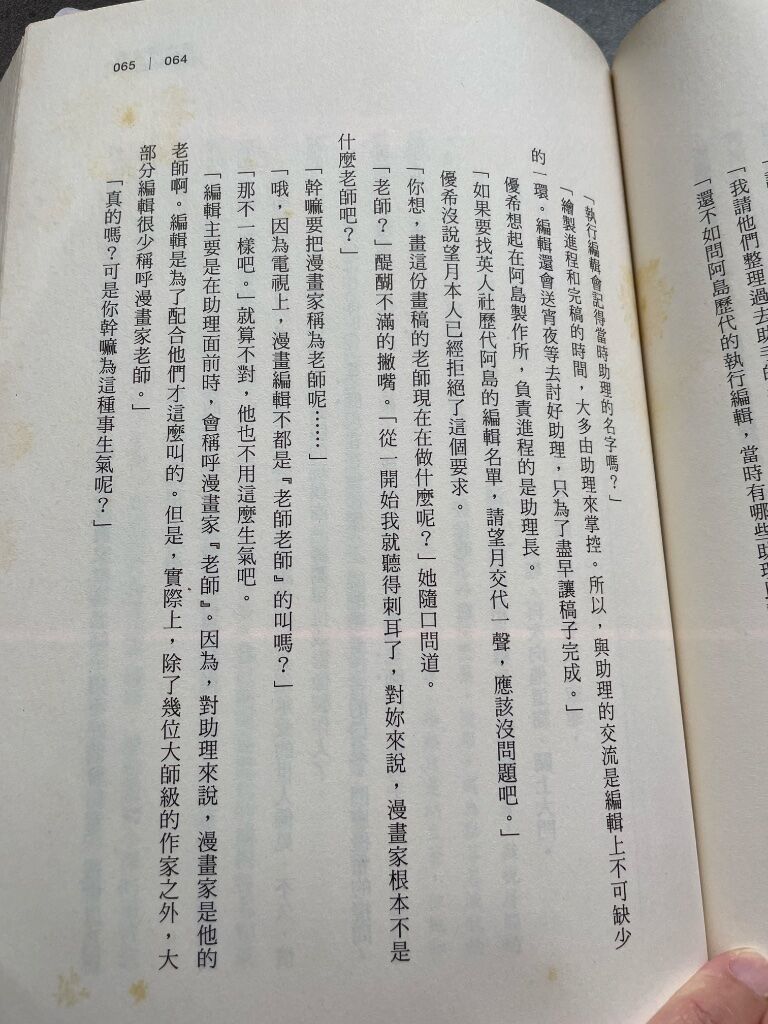 「我請他們整理過去助手的
「還不如問阿島歷代的執行編輯，當時有哪些助理
「執行編輯會記得當時助理的名字嗎？」
「繪製進程和完稿的時間，大多由助理來掌控。所以，與助理的交流是編輯上不可缺少
的一環。編輯還會送宵夜等去討好助理，只為了盡早讓稿子完成。」
優希想起在阿島製作所，負責進程的是助理長。
「如果要找英人社歷代阿島的編輯名單，請望月交代一聲，應該沒問題吧。」
優希沒說望月本人已經拒絕了這個要求。
「你想，畫這份畫稿的老師現在在做什麼呢？」她隨口問道。
「老師？」醍醐不滿的撇嘴。「從一開始我就聽得刺耳了，對妳來說，漫畫家根本不是
什麼老師吧？」
「幹嘛要把漫畫家稱為老師呢⋯⋯」
「哦，因為電視上，漫畫編輯不都是『老師老師』的叫嗎？」
「那不一樣吧。」就算不對，他也不用這麼生氣吧。
「編輯主要是在助理面前時，會稱呼漫畫家『老師』。因為，對助理來說，漫畫家是他的
老師啊。編輯是為了配合他們才這麼叫的。但是，實際上，除了幾位大師級的作家之外，大
部分編輯很少稱呼漫畫家老師。」
「真的嗎？可是你幹嘛為這種事生氣呢？」
065 | 064